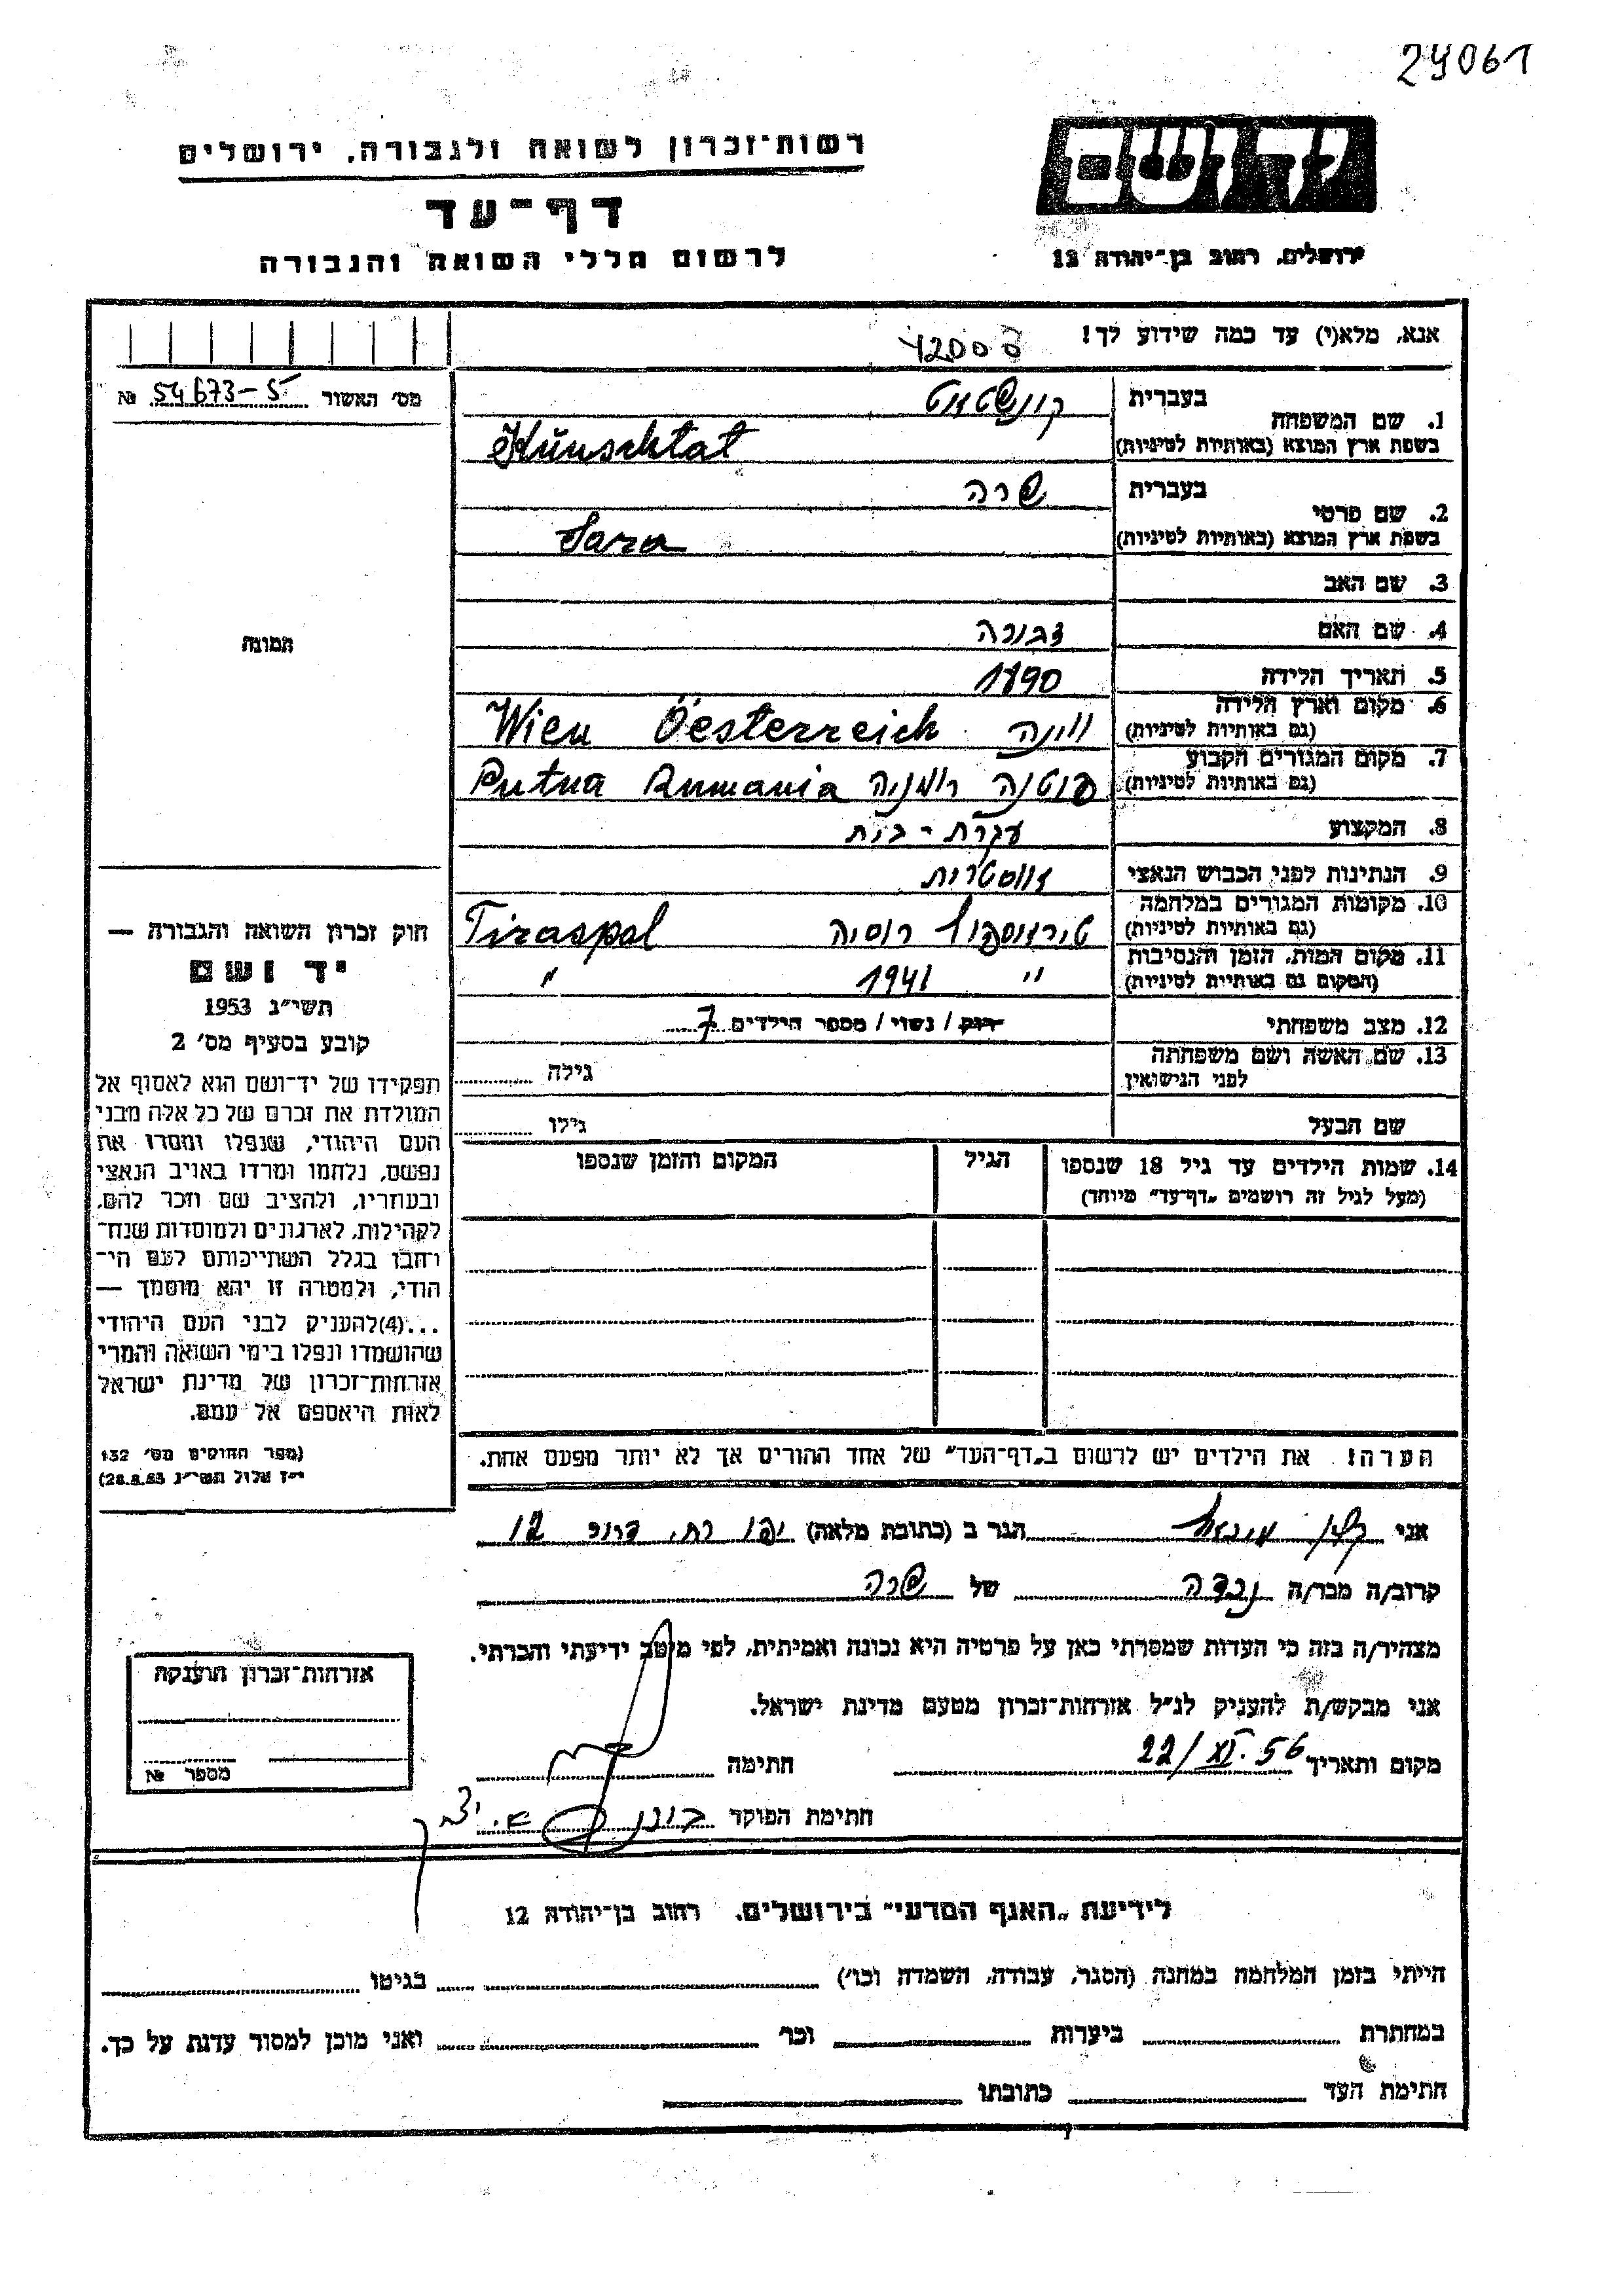 24061
יד ושם
ירושלים, רחוב בן־יהודה 12
רשות־זכרון לשואה ולגבורה, ירושלים
דף־עד
לרשום חללי השואה והגבורה
אנא, מלא(י) עד כמה שידוע לך!
מס' האשור 54673-5 №
1. שם המשפחה
בעברית קונשטאט
בשפת ארץ המוצא (באותיות לטיניות) Künschtat
2. שם פרטי
בעברית שרה
בשפת ארץ המוצא (באותיות לטיניות) Sara
3. שם האב
4. שם האם דבורה
5. תאריך הלידה 1890
6. מקום וארץ הלידה
(גם באותיות לטיניות) ווינה Wien Öesterreich
7. מקום המגורים הקבוע
(גם באותיות לטיניות) פוטנה רומניה Putna Rumania
8. המקצוע עקרת-בית
9. הנתינות לפני הכבוש הנאצי אוסטרית
10. מקומות המגורים במלחמה
(גם באותיות לטיניות) טיראספול רוסיה Tiraspol
11. מקום המות, הזמן והנסיבות
(המקום גם באותיית לטיניות) " 1941 "
12. מצב משפחתי רווק / נשוי / מספר הילדים 7
13. שם האשה ושם משפחתה
לפני הנישואין גילה
שם הבעל גילו
14. שמות הילדים עד גיל 18 שנספו
(מעל לגיל זה רושמים „דף־עד" מיוחד)
הגיל
המקום והזמן שנספו
הערה! את הילדים יש לרשום ב„דף־העד" של אחד ההורים אך לא יותר מפעם אחת.
תמונה
חוק זכרון השואה והגבורה —
יד ושם
תשי"ג 1953
קובע בסעיף מס' 2
תפקידו של יד־ושם הוא לאסוף אל
המולדת את זכרם של כל אלה מבני
העם היהודי, שנפלו ומסרו את
נפשם, נלחמו ומרדו באויב הנאצי
ובעוזריו, ולהציב שם וזכר להם,
לקהילות, לארגונים ולמוסדות שנח־
רחבו בגלל השתייכותם לעם הי־
הודי, ולמטרה זו יהא מוסמך —
...(4)להעניק לבני העם היהודי
שהושמדו ונפלו בימי השואה והמרי
אזרחות־זכרון של מדינת ישראל
לאות היאספם אל עמם.
(ספר החוקים מס' 132
י"ז אלול תשי"ג 28.8.53)
אני הגר ב (כתובת מלאה) יפו רח. 12
קרוב/ה מכר/ה נכדה של שרה
מצהיר/ה בזה כי העדות שמסרתי כאן על פרטיה היא נכונה ואמיתית, לפי מיטב ידיעתי והכרתי.
אני מבקש/ת להעניק לנ"ל אזרחות־זכרון מטעם מדינת ישראל.
מקום ותאריך 22/XI.56 חתימה
חתימת הפוקד
אזרחות־זכרון הוענקה
מספר №
לידיעת „האגף המדעי" בירושלים, רחוב בן־יהודה 12
הייתי בזמן המלחמה במחנה (הסגר, עבודה, השמדה וכו') בגיטו
במחתרת ביערות וכו' ואני מוכן למסור עדות על כך.
חתימת העד כתובתו